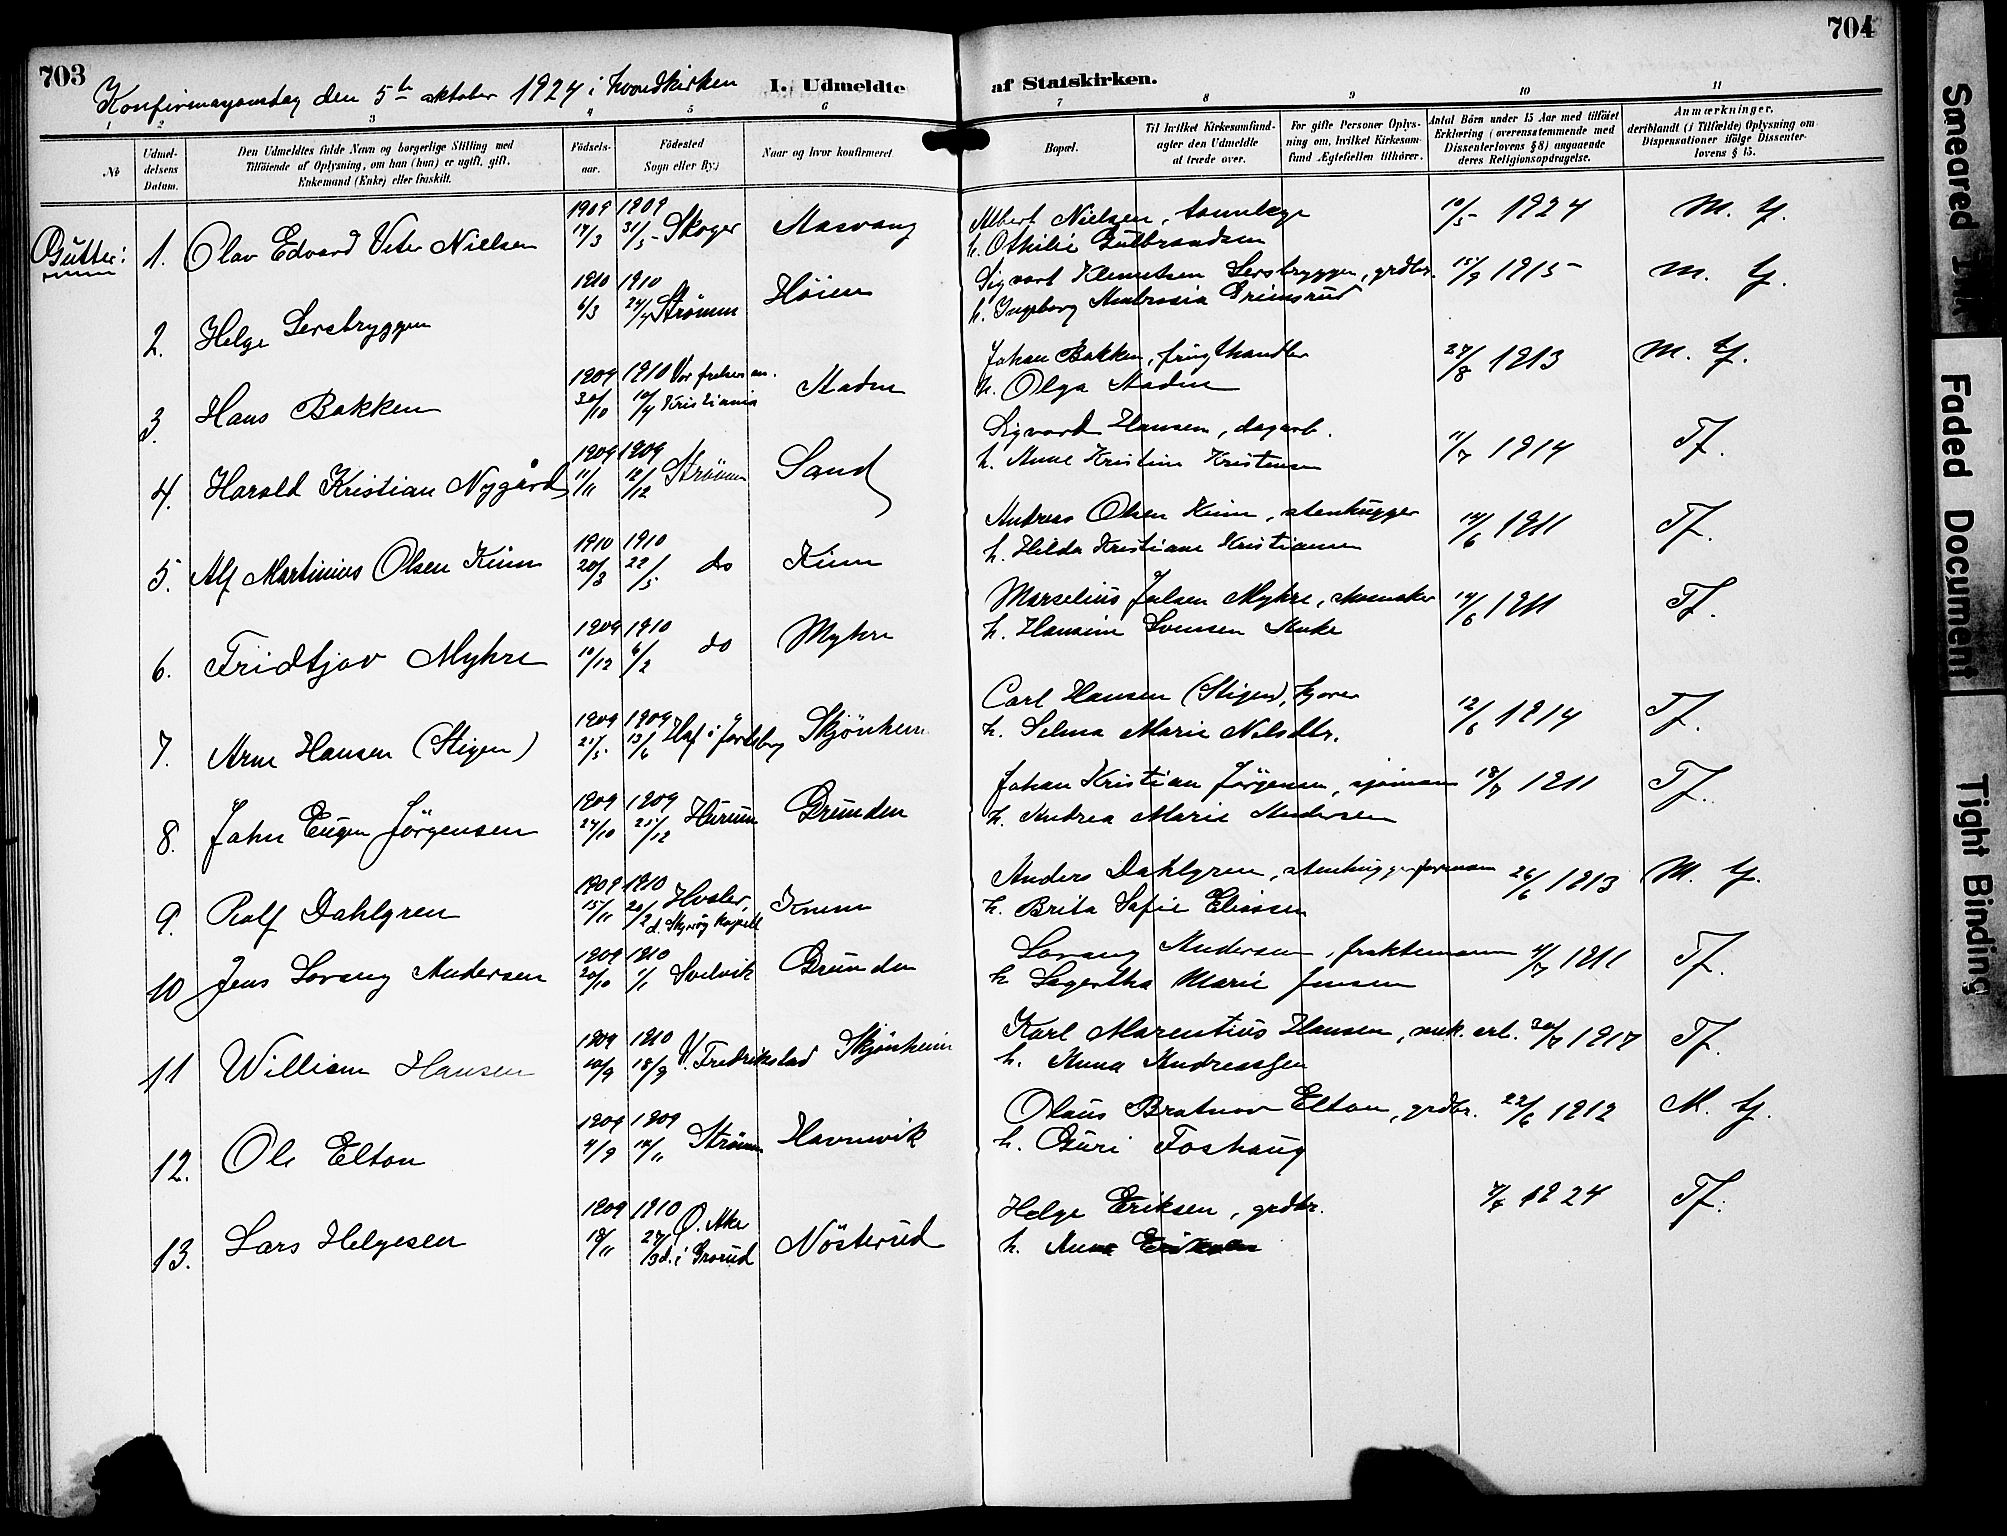 703
704
Konfirmasjonsdag den 5te oktober 1924 i hovedkirken
I. Udmeldte af Statskirken.
1 2 3 4 5 6 7 8 9 10 11
No
Udmeldelsens Datum.
Den Udmeldtes fulde Navn og borgerlige Stilling med
Tilføiende af Oplysning, om han (hun) er ugift, gift,
Enkemand (Enke) eller fraskilt.
Fødselsaar.
Fødested
Sogn eller By.)
Naar og hvor konfirmeret
Bopæl.
Til hvilket Kirkesamfund
agter den Udmeldte
at træde over.
For gifte Personer Oplysning
om, hvilket Kirkesamfund
Ægtefællen tilhører.
Antal Børn under 15 Aar med tilføiet
Erklæring (overensstemmende med
Dissenterlovens § 8) angaaende
deres Religionsopdragelse.
Anmærkninger,
deriblandt (i Tilfælde) Oplysning om
Dispensationer ifølge Dissenterlovens § 15.
Gutter:
1. Olav Edvard Veter Nielsen 1909 17/3 1909 31/5 Skoger Aasvang Albert Nielsen, tannlege 10/5 1924 M. G.
h. Othilie Gulbrandsen
2. Helge Sersbryggen 1910 6/3 1910 24/4 Strømm Høien Sigvart Klemetsen Sersbryggen, grdbr. 15/9 1915 M. G.
h. Ingeborg Ambrosia Grimsrud
3. Hans Bakken 1909 30/10 1910 10/4 Vor frelsers m. Kristiania Aaden Johan Bakken, frugthandler 27/8 1913 M. G.
h. Olga Aaden
4. Harald Kristian Nygård 1909 11/11 1909 12/12 Strømm Sand Sigvard Hansen, dagarb. 11/7 1914 Tf.
h. Anne Kristine Kristensen
5. Alf Martinius Olsen Kinn 1910 20/3 1910 22/5 do Kinn Andreas Olsen Kinn, stenhugger 14/6 1911 Tf.
h. Hilda Kristiane Kristiansen
6. Fridtjov Myhre 1909 10/12 1910 6/2 do Myhre Marselius Julsen Myhre, skomaker 14/6 1911 Tf.
h. Hansine Svensen Anke
7. Arne Hansen (Stigen) 1909 21/5 1909 13/6 Hof i Jarlsberg Skjønheim Carl Hansen (Stigen), kjører 12/6 1914 Tf.
h. Selma Marie Nilsdtr.
8. John Eugen Jörgensen 1909 27/10 1909 25/12 Hurum Grunden Johan Kristian Jörgensen, sjömann 18/7 1911 Tf.
h. Andrea Marie Andersen
9. Rolf Dahlgren 1909 15/11 1910 20/2 Hvaler, d. Skjærøy kapell Knem Anders Dahlgren, stenhuggerformann 26/6 1913 M. G.
h. Brita Sofie Eliassen
10 Jens Sorang Andersen 1909 20/10 1910 1/1 Svelvik Grunden Sorang Andersen, fraktemann 4/7 1911 Tf.
h Lagertha Marie Jensen
11 William Hansen 1909 10/9 1910 18/9 V. Fredrikstad Skjønheim Karl Marentius Hansen, mek. arb. 20/7 1917 Tf.
h. Anna Andreassen
12. Ole Elton 1909 4/9 1909 14/11 Strømm Havnevik Olaus Bratvov Elton, grdbr. 22/6 1912 M. G.
h. Guri Foshaug
13. Lars Helgesen 1909 18/11 1910 27/3 Ø. Aker d. i Grorud Nösterud Helge Eriksen, grdbr. 7/4 1924 Tf.
h. Anne
Smeared Ink
Faded Document
Tight Binding